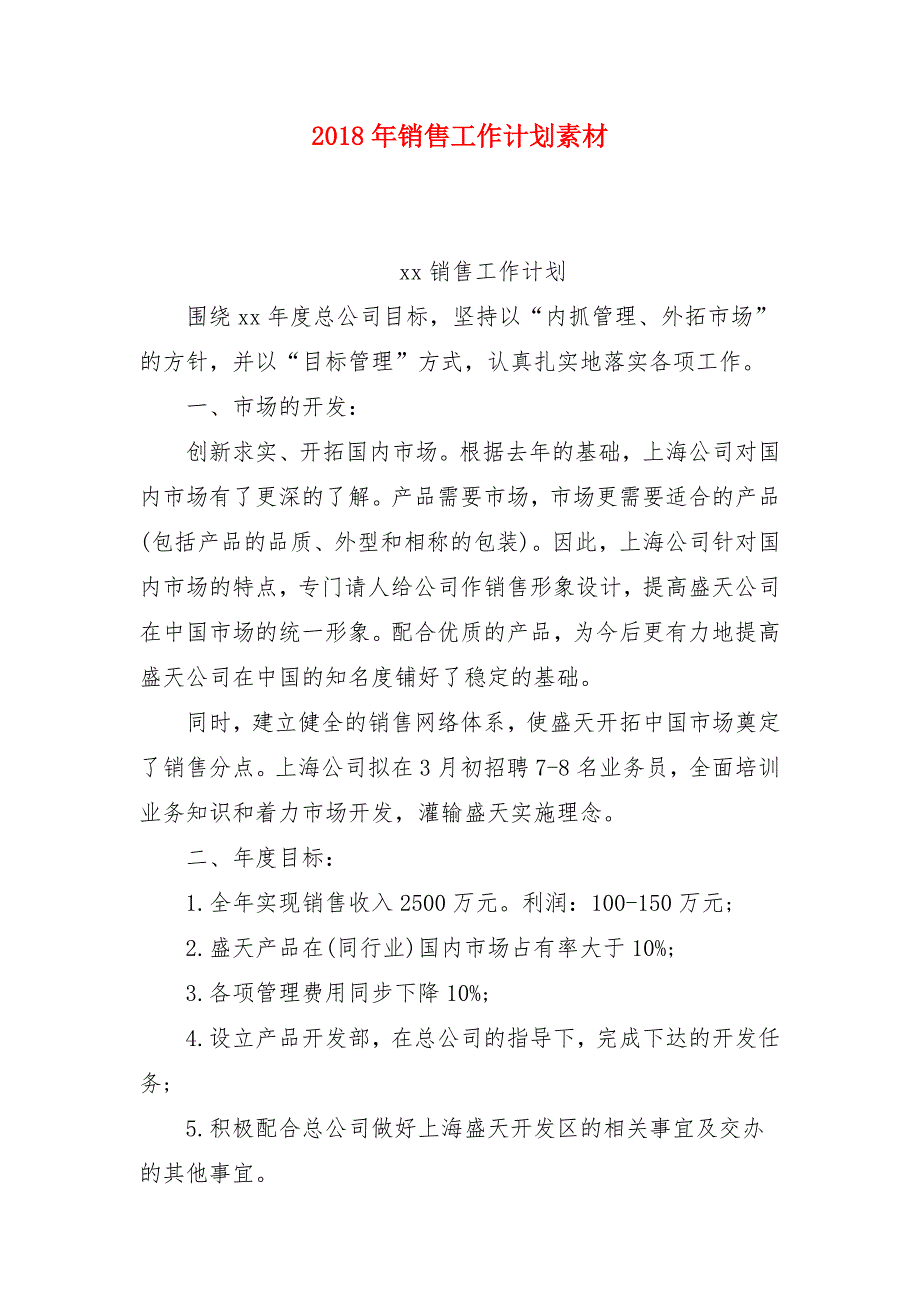 2018年销售工作计划素材
xx销售工作计划
围绕xx年度总公司目标，坚持以“内抓管理、外拓市场”
的方针，并以“目标管理”方式，认真扎实地落实各项工作。
一、市场的开发：
创新求实、开拓国内市场。根据去年的基础，上海公司对国
内市场有了更深的了解。产品需要市场，市场更需要适合的产品
(包括产品的品质、外型和相称的包装)。因此，上海公司针对国
内市场的特点，专门请人给公司作销售形象设计，提高盛天公司
在中国市场的统一形象。配合优质的产品，为今后更有力地提高
盛天公司在中国的知名度铺好了稳定的基础。
同时，建立健全的销售网络体系，使盛天开拓中国市场奠定
了销售分点。上海公司拟在3月初招聘7-8名业务员，全面培训
业务知识和着力市场开发，灌输盛天实施理念。
二、年度目标：
1.全年实现销售收入2500万元。利润：100-150万元;
2.盛天产品在(同行业)国内市场占有率大于10%;
3.各项管理费用同步下降10%;
4.设立产品开发部，在总公司的指导下，完成下达的开发任
务;
5.积极配合总公司做好上海盛天开发区的相关事宜及交办
的其他事宜。